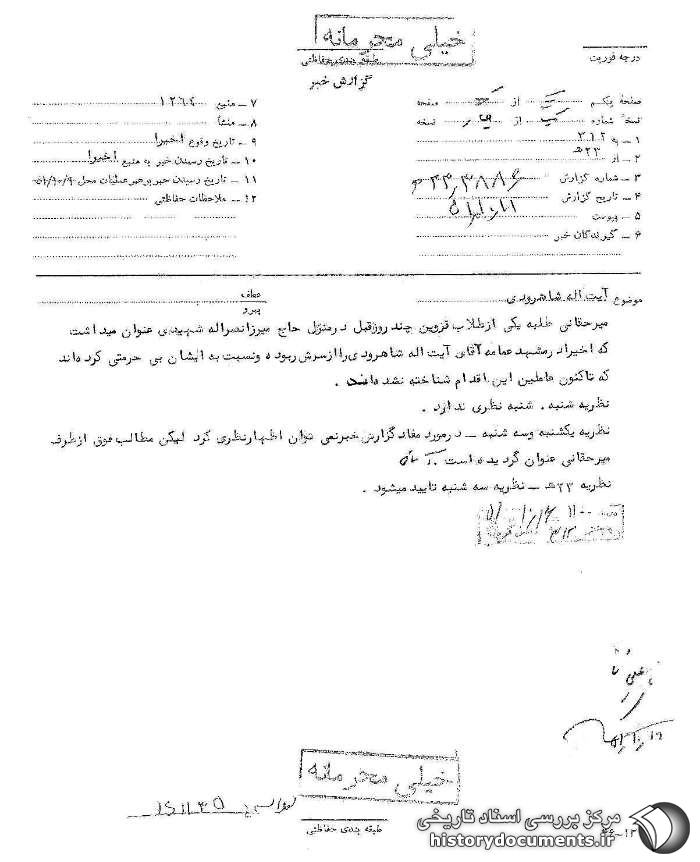 خیلی محرمانه
طبقه بندی حفاظتی
درجه فوریت
گزارش خبر
صفحه یکم از صفحه
نسخه شماره از نسخه
۱ – به ۳۱۲
۲ – از ۲۳ﻫ
۳ – شماره گزارش
۴ – تاریخ گزارش
۵ – پیوست
۶ – گیرندگان خبر
۷ – منبع ۱۲۶۲
۸ – منشأ
۹ – تاریخ وقوع اخیرا
۱۰ – تاریخ رسیدن خبر به منبع اخیرا
۱۱ – تاریخ رسیدن خبر برهبر عملیات محل ۵۱/۱۰/۹
۱۲ – ملاحظات حفاظتی
موضوع آیت اله شاهرودی
عطف
پیرو
میرحقانی طلبه یکی ازطلاب قزوین چند روزقبل درمنزل حاج میرزانصراله شهیدی عنوان میداشت
که اخیرا درمشهد عمامه آقای آیت اله شاهرودی راازسرش ربوده ونسبت به ایشان بی حرمتی کرده اند
که تاکنون عاملین این اقدام شناخته نشده اند .
نظریه شنبه . شنبه نظری ندارد .
نظریه یکشنبه وسه شنبه – درمورد مفاد گزارش خبرنمی توان اظهارنظری کرد لیکن مطالب فوق ازطرف
میرحقانی عنوان گردیده است
نظریه ۲۳ﻫ – نظریه سه شنبه تایید میشود .
خیلی محرمانه
طبقه بندی حفاظتی
مرکز بررسی اسناد تاریخی
historydocuments.ir